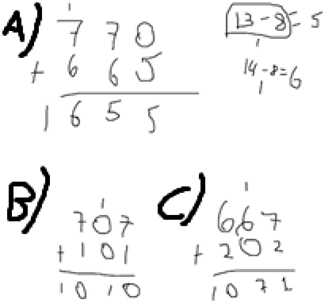 A)
1
7 7 0
+ 6 6 5
1 6 5 5
13 - 8 = 5
1
14 - 8 = 6
1
B)
1
7 0 7
+ 1 0 1
1 0 1 0
C)
1
6 6 7
+ 2 0 2
1 0 7 1